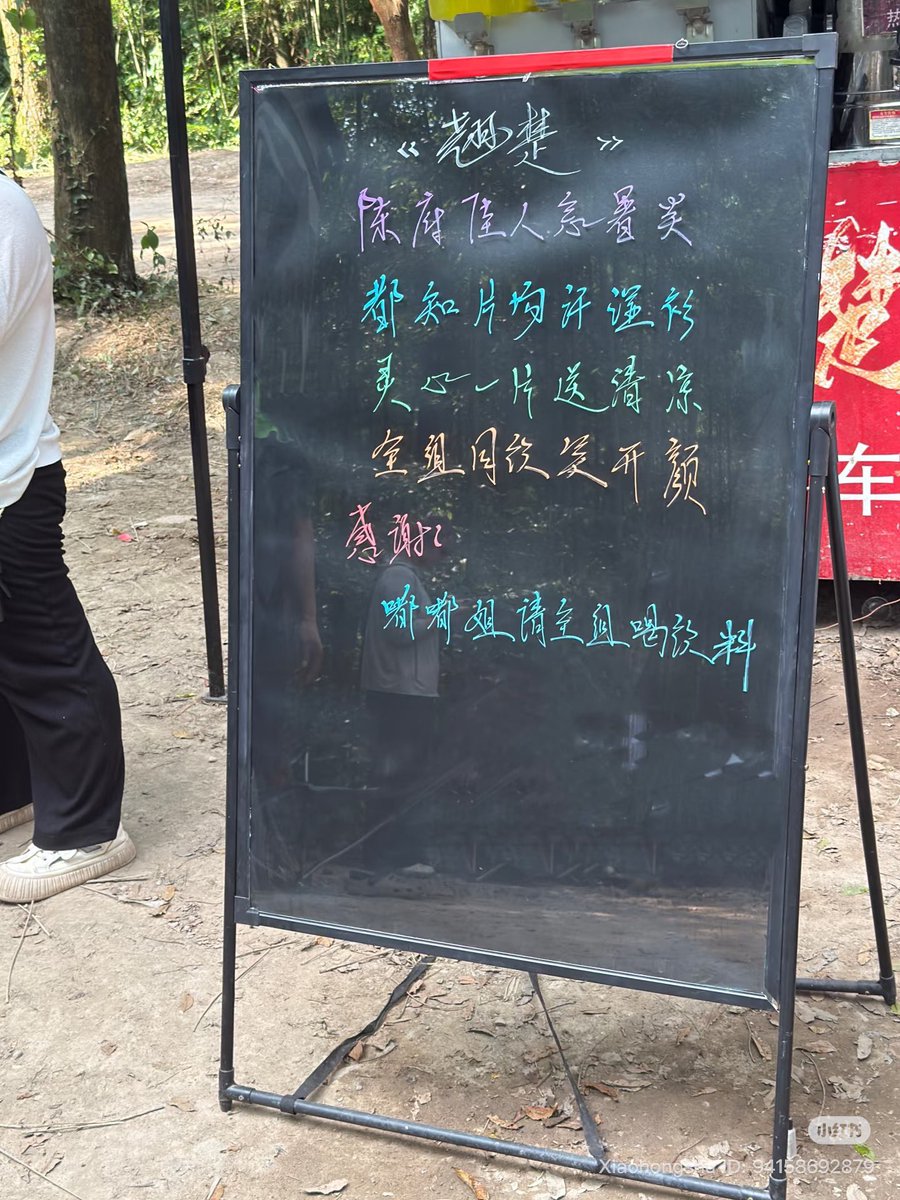 《翘楚》
陈府佳人忽暑炎
都知片场汗湿衫
灵心一片送清凉
全组同饮笑开颜
感谢:
嘟嘟姐请全组喝饮料
车
热
小红书
Xiaohongshu ID: 94158692879